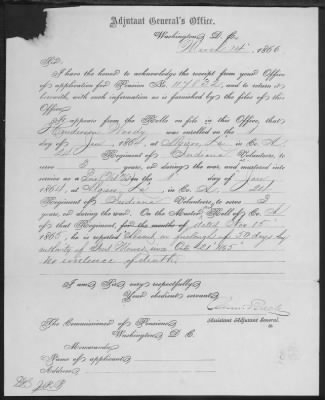 Adjutant General's Office,
Washington, D. C.,
March 14", 1866
Sir:
I have the honor to acknowledge the receipt from your Office
of application for Pension No. and to return it
herewith, with such information as is furnished by the files of this
Office.
It appears from the Rolls on file in this Office, that
Anderson was enrolled on the
day of 1864, at in Co. H
21 Regiment of Indiana Volunteers, to
serve 3 years, or during the war, and mustered into
service as a in the day of Jany
1864, at in Co. H, 21
Regiment of Indiana Volunteers, to serve 3
years, or during the war. On the Muster Roll of Co. H
of that Regiment, for the months of dated Nov 15"
1865, he is reported absent on furlough for 30 days by
authority of Genl 1865
no evidence of death.
I am, Sir, very respectfully,
Your obedient servant,
Assistant Adjutant General.
The Commissioner of Pensions,
Washington, D. C.
Memoranda:
Name of applicant,
Address,